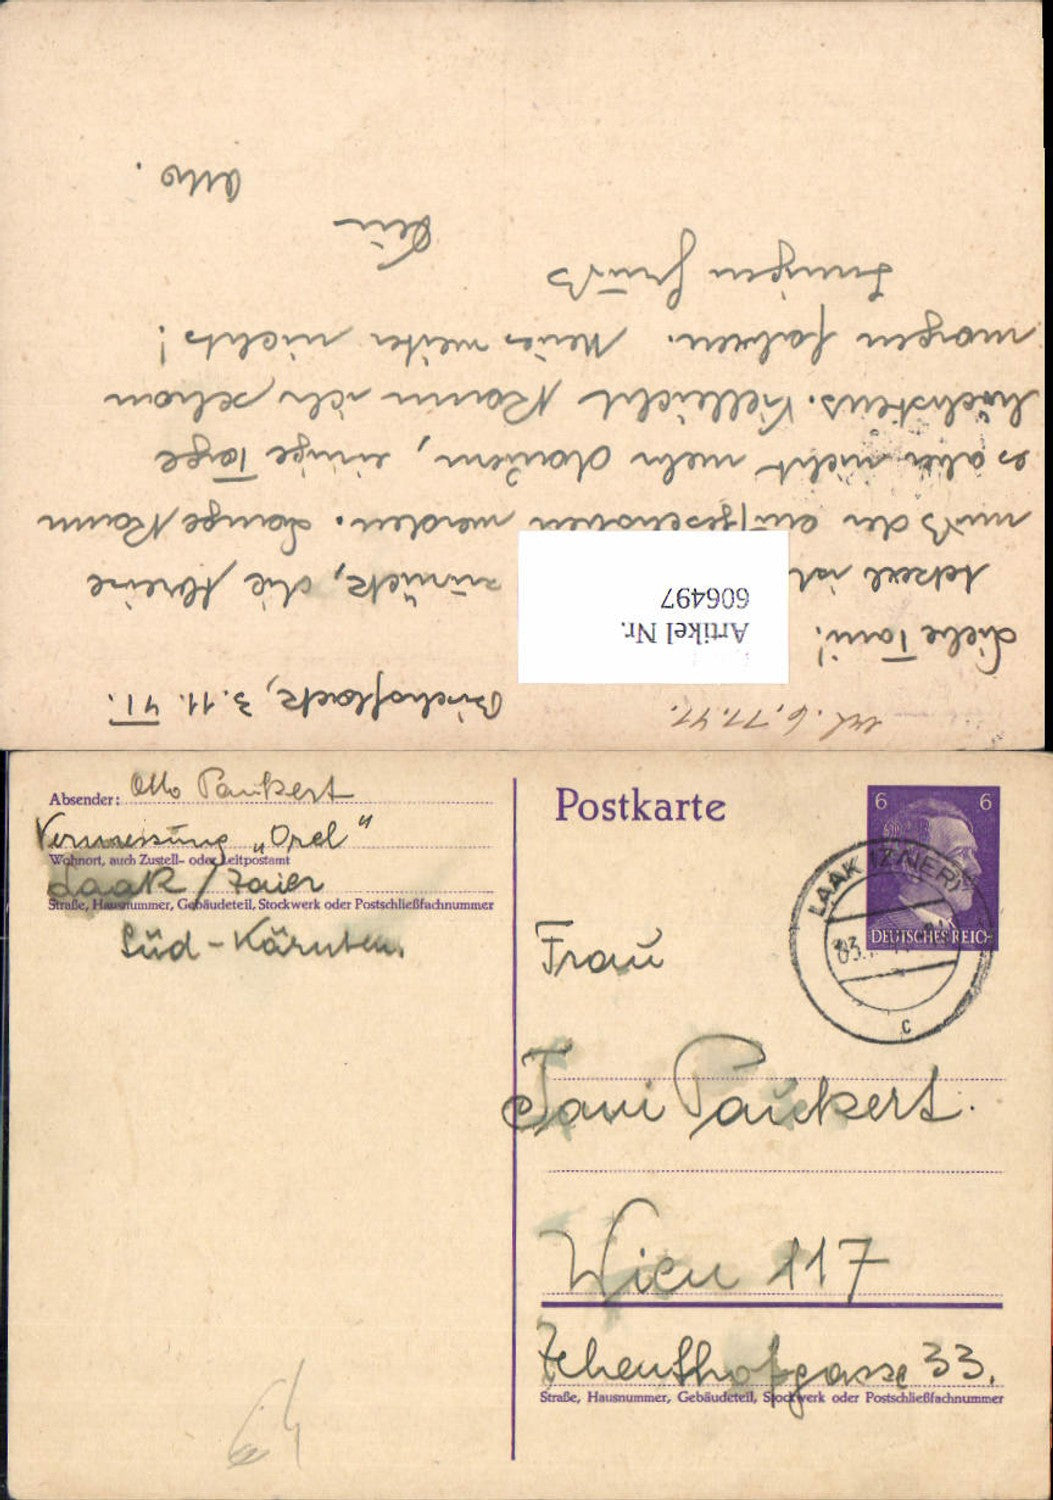 erh. 6.11.41.
Bischoflack, 3.11.41.
Liebe Tani!
Jeksel ist zurück, die Kreise
muß der aufgeschoben werden. Lange kann
es aber nicht mehr dauern, einige Tage
höchstens. Vielleicht kann ich schon
morgen fahren. Neues weiter nichts!
Innigen Gruß
Dein
Otto.
Artikel Nr.
606497
Absender: Otto Paukert
Vermessung "Orel"
Wohnort, auch Zustell- oder Leitpostamt
Laak / Zaier
Straße, Hausnummer, Gebäudeteil, Stockwerk oder Postschließfachnummer
Süd-Kärnten.
Postkarte
6 6
DEUTSCHES REICH
LAAK (ZAIER)
03.
c
Frau
Tani Paukert.
Wien 117
Zehenthofgasse 33.
Straße, Hausnummer, Gebäudeteil, Stockwerk oder Postschließfachnummer